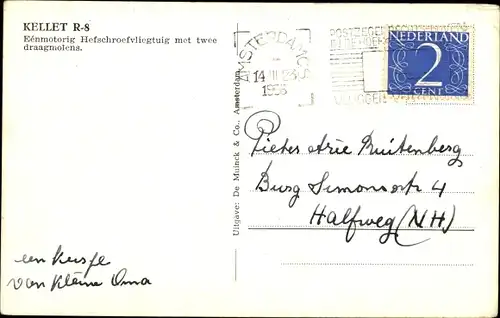 KELLET R-8
Eénmotorig Hefschroefvliegtuig met twee
draagmolens.
Uitgave: De Muinck & Co., Amsterdam
AMSTERDAM CS
14 III 23
1956
NEDERLAND
2
CENT
Pieter Arie Ruitenberg
Burg Simonsstr 4
Halfweg (NH)
een kusje
van kleine Oma